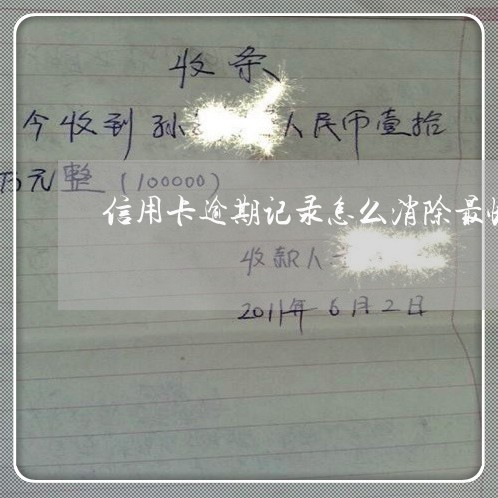 收条
今收到孙 人民币壹拾
万元整（100000）
信用卡逾期记录怎么消除最
收款人
2011年6月2日